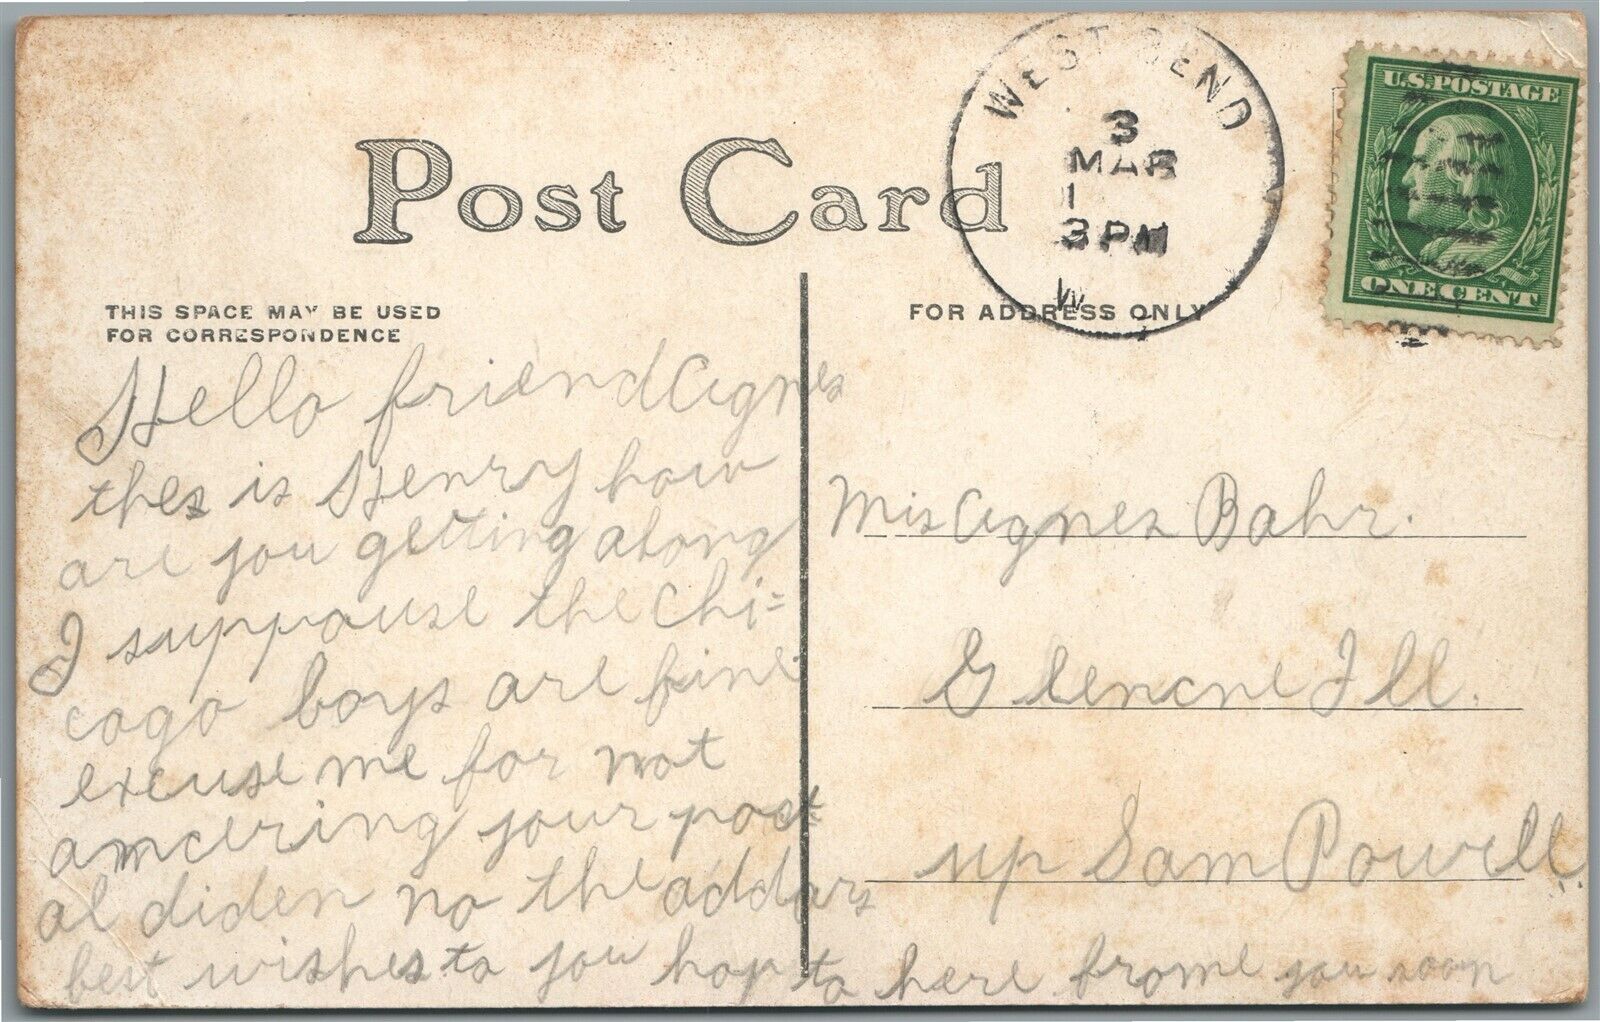 Post Card
WEST BEND
3
MAR
1
3 PM
W
U.S. POSTAGE
ONE CENT
THIS SPACE MAY BE USED
FOR CORRESPONDENCE
FOR ADDRESS ONLY
Hello friend Agnes
thes is Henry how
are you getting along
I suppouse the Chi=
cogo boys are fine
excuse me for not
amcering your post
al diden no the addars
best wishes to you hop to here frome you soon
Mis Agnes Bahr.
Glencne Ill.
up Sam Powell